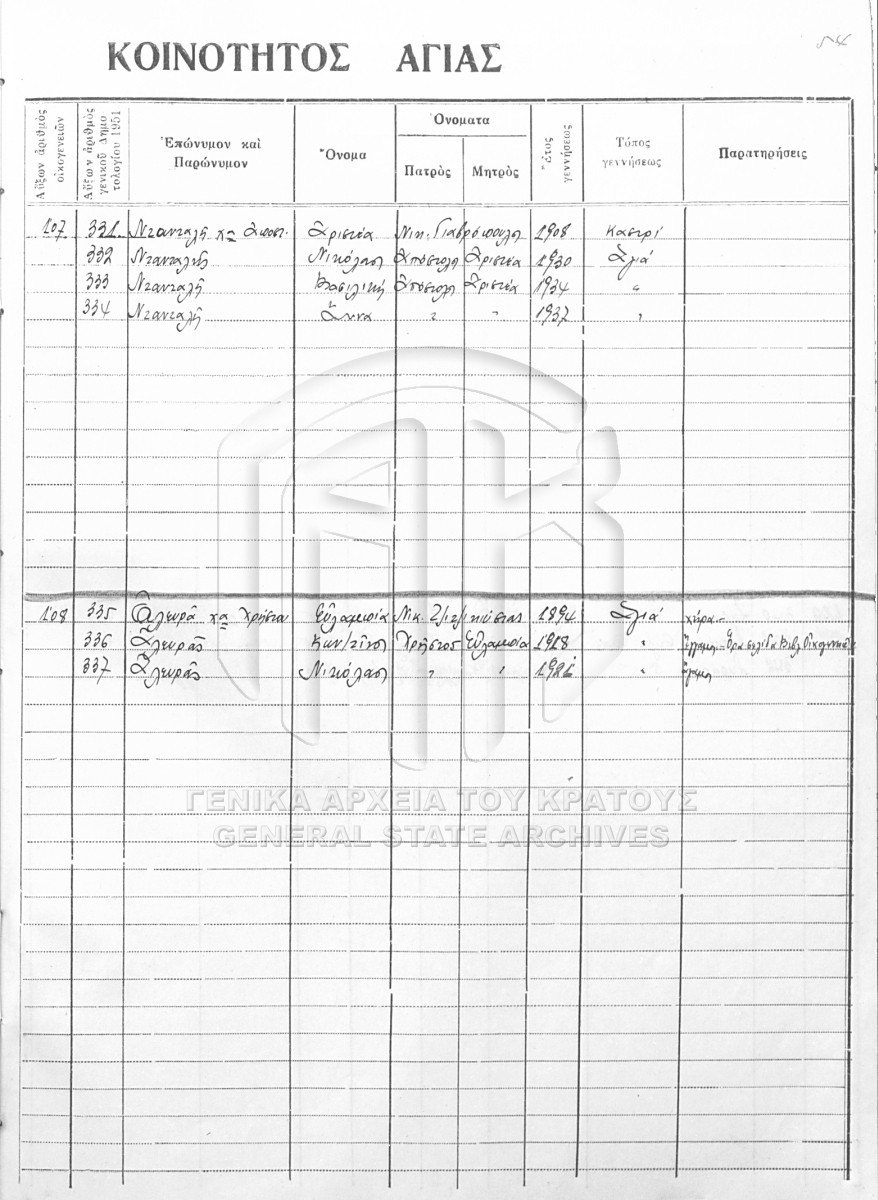 54
ΚΟΙΝΟΤΗΤΟΣ ΑΓΙΑΣ
Αὔξων ἀριθμὸς οἰκογενειῶν
Αὔξων ἀριθμὸς γενικοῦ Δημοτολογίου 1951
Ἐπώνυμον καὶ Παρώνυμον
Ὄνομα
Ὀνοματα
Πατρὸς
Μητρὸς
Ἔτος γεννήσεως
Τόπος γεννήσεως
Παρατηρήσεις
107 331 Ντανταλῆ χα Ἀποστ. Ἀριστέα Νικ. 1908 Καστρί
332 Νταντάλης Νικόλαος Ἀπόστολ Ἀριστέα 1930 Ἁγιά
333 Ντανταλῆ Βασιλική Ἀπόστολ Ἀριστέα 1934 "
334 Ντανταλῆ Ἄννα " " 1937 "
108 335 Ἀλευρᾶ χα Χρήστου Εὐλαμπία Νικ. 1894 Ἁγιά χήρα
336 Ἀλευρᾶς Κων/τῖνος Χρῆστος Εὐλαμπία 1918 "
337 Ἀλευρᾶς Νικόλαος " " 1921 "
ΓΕΝΙΚΑ ΑΡΧΕΙΑ ΤΟΥ ΚΡΑΤΟΥΣ
GENERAL STATE ARCHIVES